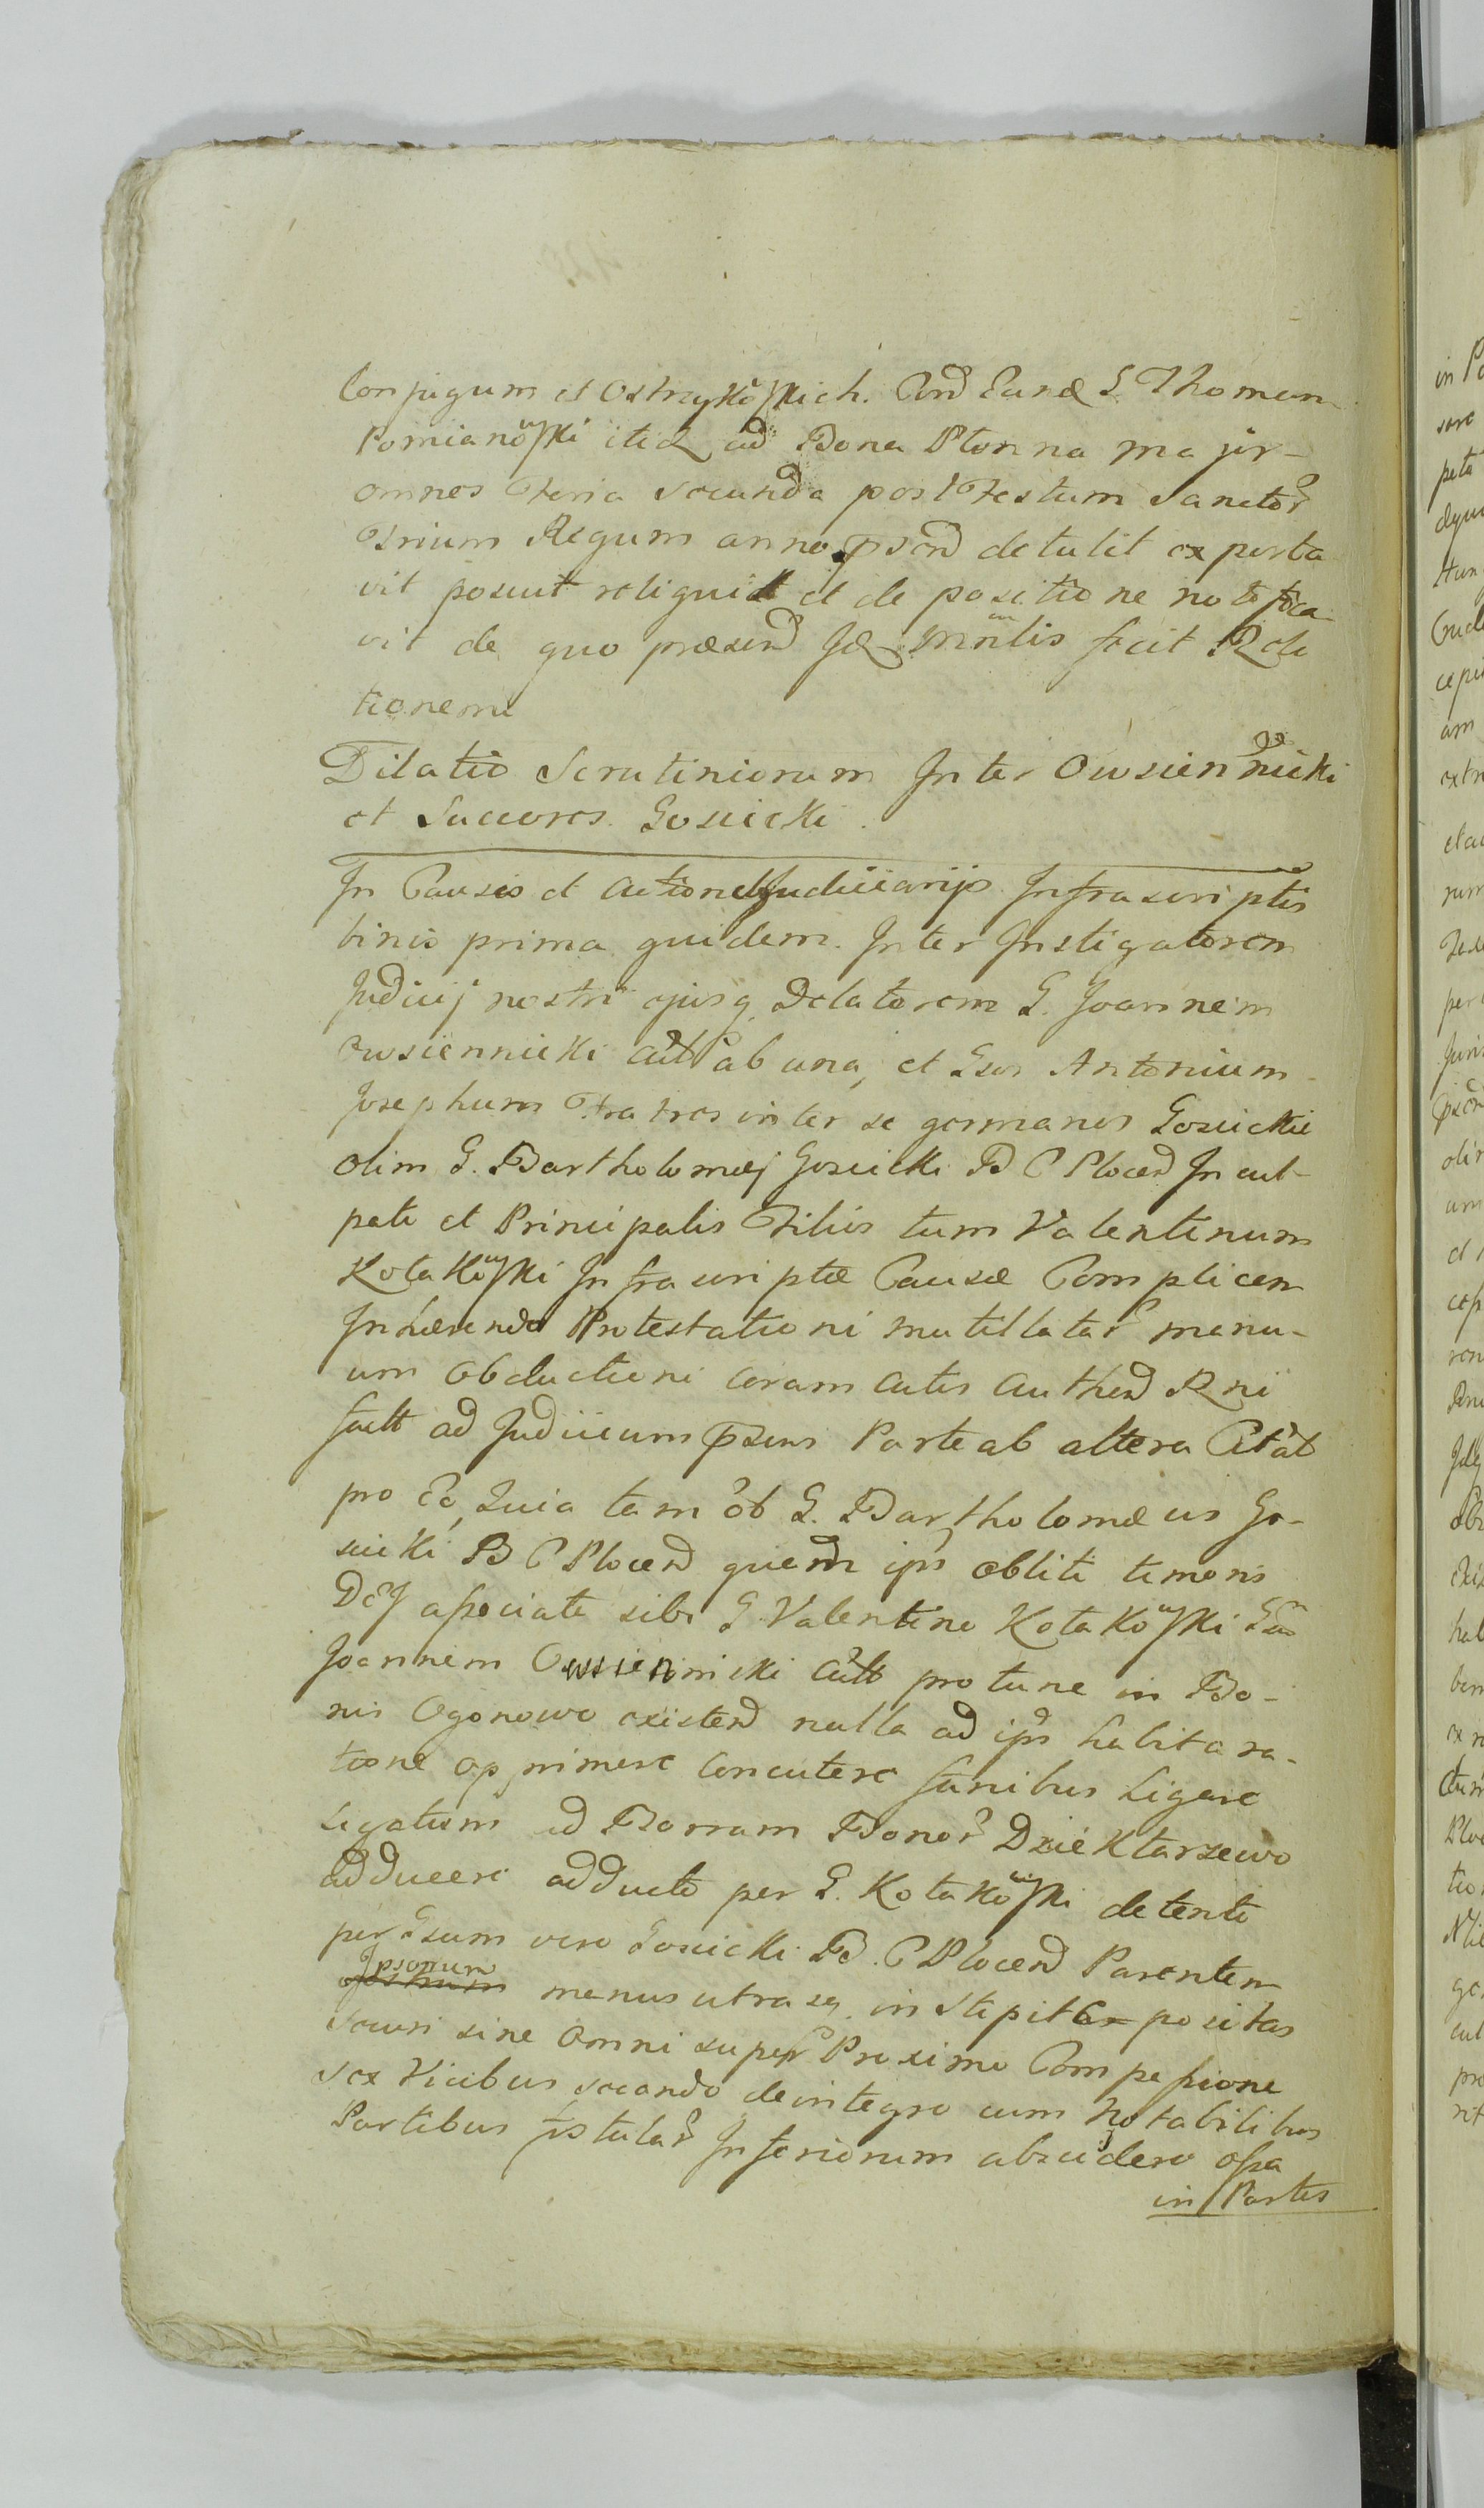 Conjugum et Ostrzykowskich. Cond Eand G Thomam
Pomianowski iteq ad Bona Płonna major-
omnes Feria secunda post Festum Sanctor
Trium Regum anno pscnd detulit exporta
vit posuit reliquit et de positione notifica
vit de quo præsend Jd Mintlis fecit Rela
tionem
Dilatio Scrutiniorum Inter Owsiennicki
et Succores Gosicki
In Causis et Actionib Judiciarijs Infrascriptis
binis prima quidem Inter Instigatorem
Judicij nostri ejusq Delatorem G. Joannem
Owsiennicki Actt ab una, et Gsos Antonium
Josephum Fratres inter se germanos Gosickie
olim G. Bartholomæj Gosicki B C Plocend Incul-
pati et Principalis Filios tum Valentinum
Kotakowski Infrascriptæ Causæ Complicem
Inhærendo Protestationi mutillatar manu-
um Obductioni coram Actis Authend Rni
factt ad Judicium Psens Parte ab altera Citat
pro Eo, Quia tam ob G. Bartholomæus Go-
sicki B C Plocend quam ips obliti timoris
DEJ associato sibi G Valentino Kotakowski Gsu
Joannem Owsiennicki Actt pro tunc in Bo-
nis Ogonowo existend nulla ad ips habita ra-
tione opprimere concutere funibus Ligare
Ligatum ad Borram Bonor Dziektarzewo
adducere adducto per G. Kotakowski detenti
per Gsum vero Gosicki B. C Plocend Parentem
Ipsorum manus utrasq in stipite positas
securi sine omni super Proximo Compassione
sex Vicibus secando deintegro cum Notabilibus
Partibus fistular Inferiorum abscidere ossa
in Partes